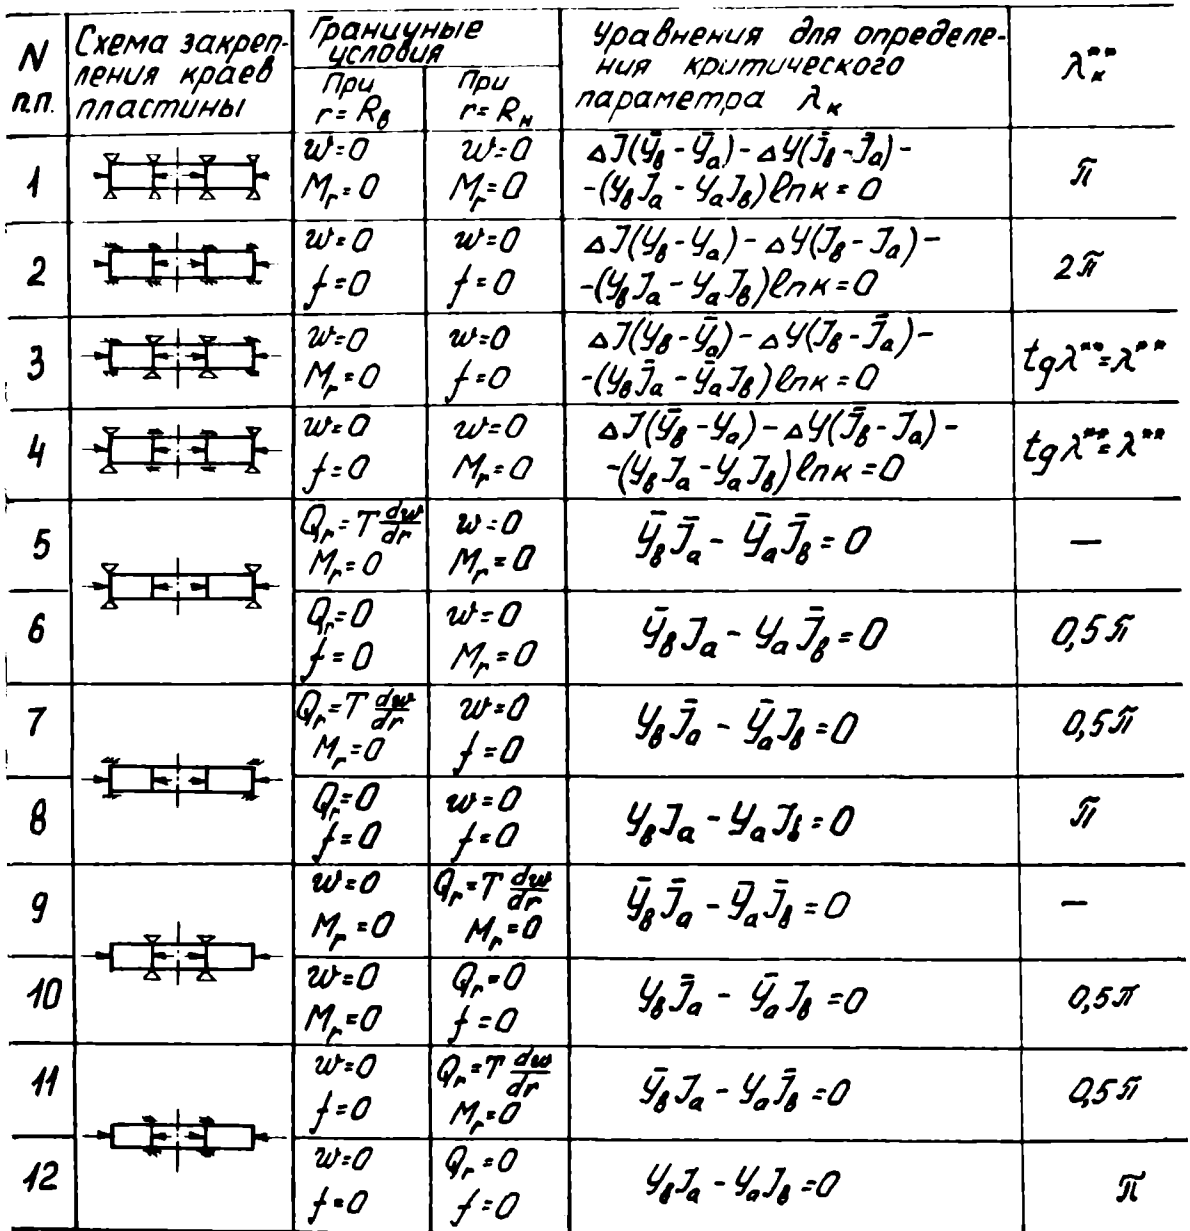 N п.п.
Схема закреп-
ления краев
пластины
Граничные
условия
При
r = Rв
При
r = Rн
Уравнения для определе-
ния критического
параметра λк
λк**
1
w=0
Mr=0
w=0
Mr=0
ΔJ(Ȳв - Ȳa) - ΔY(J̄в - J̄a) -
-(Ȳв J̄a - Ȳa J̄в) ln к = 0
π
2
w=0
f=0
w=0
f=0
ΔJ(Yв - Ya) - ΔY(Jв - Ja) -
-(Yв Ja - Ya Jв) ln к = 0
2π
3
w=0
Mr=0
w=0
f=0
ΔJ(Yв - Ȳa) - ΔY(Jв - J̄a) -
-(Yв J̄a - Ȳa Jв) ln к = 0
tgλ** = λ**
4
w=0
f=0
w=0
Mr=0
ΔJ(Ȳв - Ya) - ΔY(J̄в - Ja) -
-(Ȳв Ja - Ya J̄в) ln к = 0
tgλ** = λ**
5
Qr = T dw/dr
Mr=0
w=0
Mr=0
Ȳв J̄a - Ȳa J̄в = 0
—
6
Qr=0
f=0
w=0
Mr=0
Ȳв Ja - Ya J̄в = 0
0,5π
7
Qr = T dw/dr
Mr=0
w=0
f=0
Yв J̄a - Ȳa Jв = 0
0,5π
8
Qr=0
f=0
w=0
f=0
Yв Ja - Ya Jв = 0
π
9
w=0
Mr=0
Qr = T dw/dr
Mr=0
Ȳв J̄a - Ȳa J̄в = 0
—
10
w=0
Mr=0
Qr=0
f=0
Yв J̄a - Ȳa Jв = 0
0,5π
11
w=0
f=0
Qr = T dw/dr
Mr=0
Ȳв Ja - Ya J̄в = 0
0,5π
12
w=0
f=0
Qr=0
f=0
Yв Ja - Ya Jв = 0
π